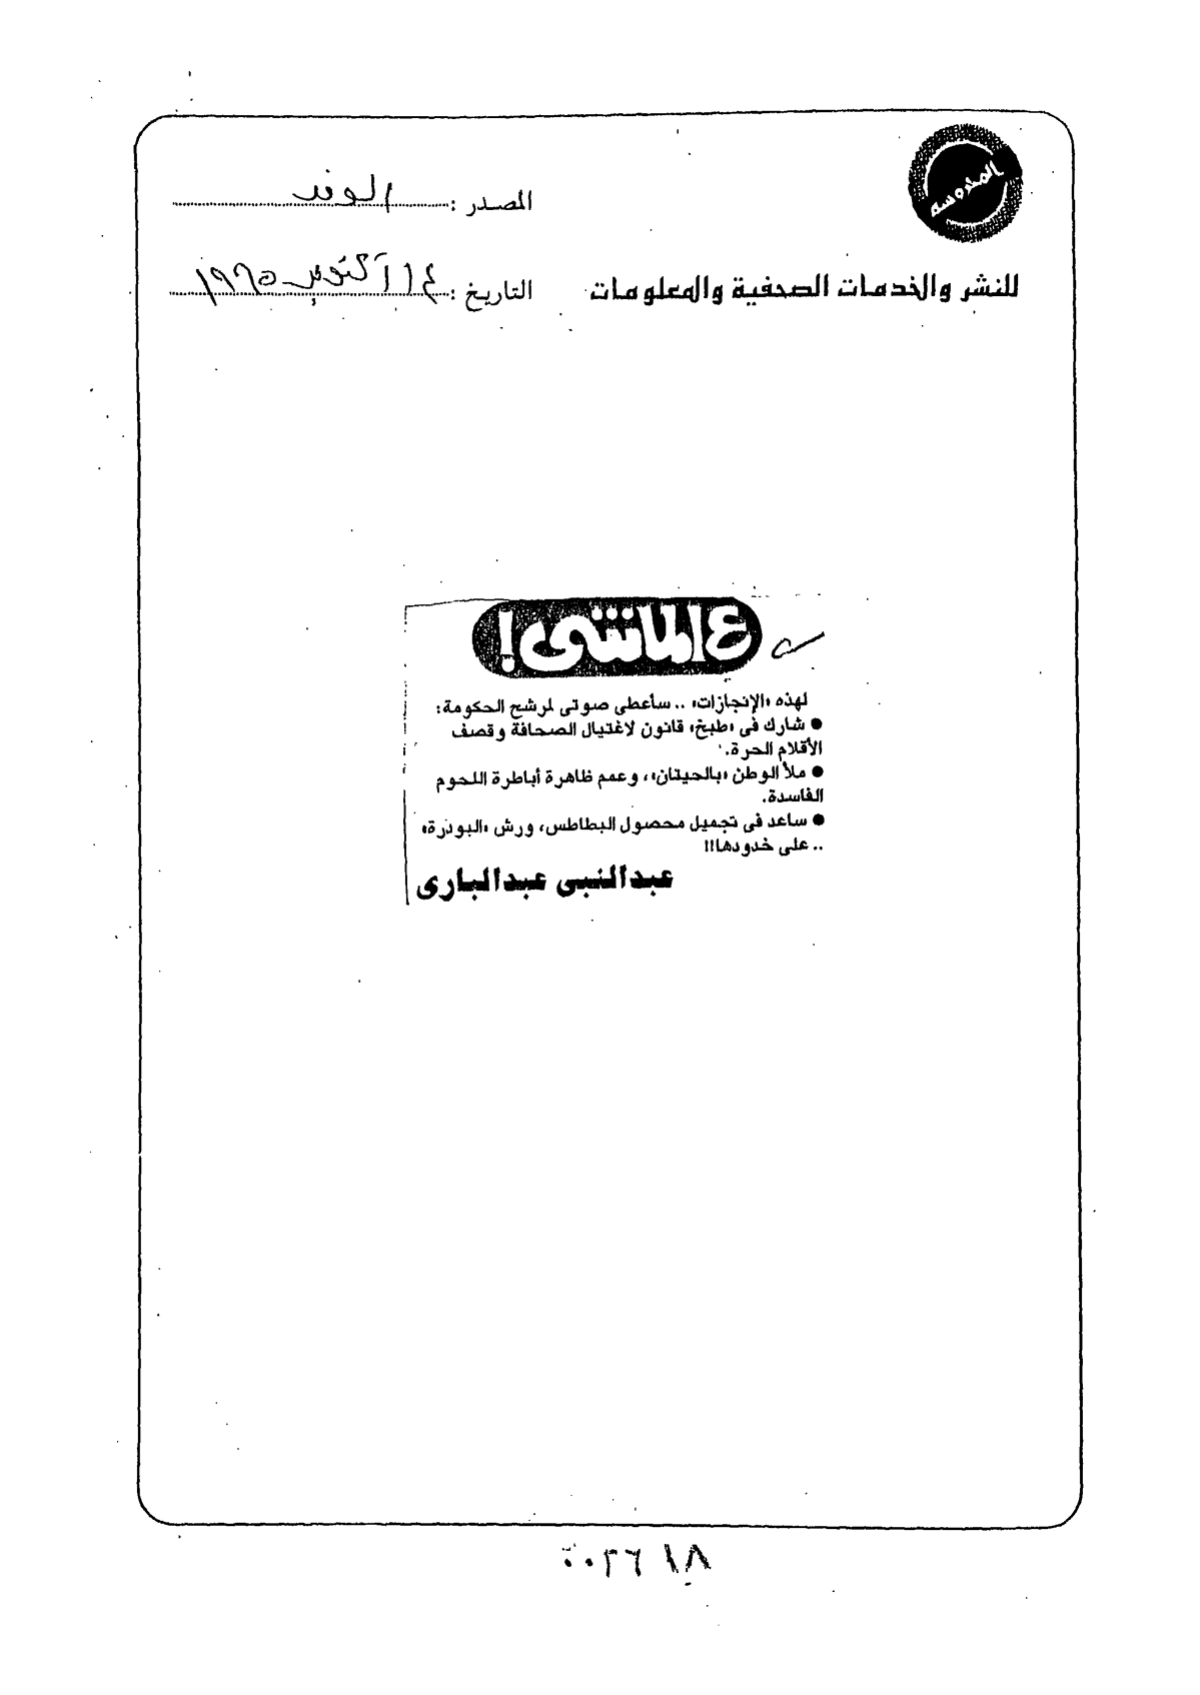 المحروسة
المصدر : الوفد
للنشر والخدمات الصحفية والمعلومات
التاريخ : ١٤ أكتوبر ١٩٩٥
ع الماشى !
لهذه «الإنجازات» .. سأعطى صوتى لمرشح الحكومة:
● شارك فى «طبخ» قانون لاغتيال الصحافة وقصف
الأقلام الحرة.
● ملأ الوطن «بالحيتان»، وعمم ظاهرة أباطرة اللحوم
الفاسدة.
● ساعد فى تجميل محصول البطاطس، ورش «البودرة»
.. على خدودها!!
عبدالنبى عبدالبارى